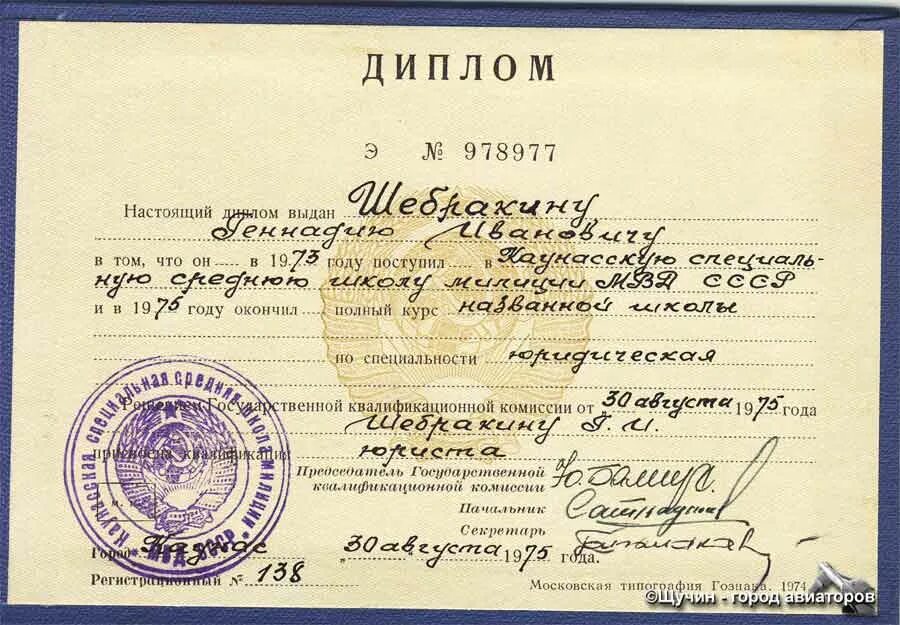 ДИПЛОМ
Э № 978977
Настоящий диплом выдан Шебракину
Геннадию Ивановичу
в том, что он в 1973 году поступил в Каунасскую специаль-
ную среднюю школу милиции МВД СССР
и в 1975 году окончил полный курс названной школы
по специальности юридическая
Решением Государственной квалификационной комиссии от 30 августа 1975 года
Шебракину Г. И.
присвоена квалификация юриста
Председатель Государственной
квалификационной комиссии
Начальник
Секретарь
Город Каунас 30 августа 1975 года.
Регистрационный № 138
Московская типография Гознака. 1974.
Каунасская специальная средняя школа милиции * МВД СССР *
©Щучин - город авиаторов